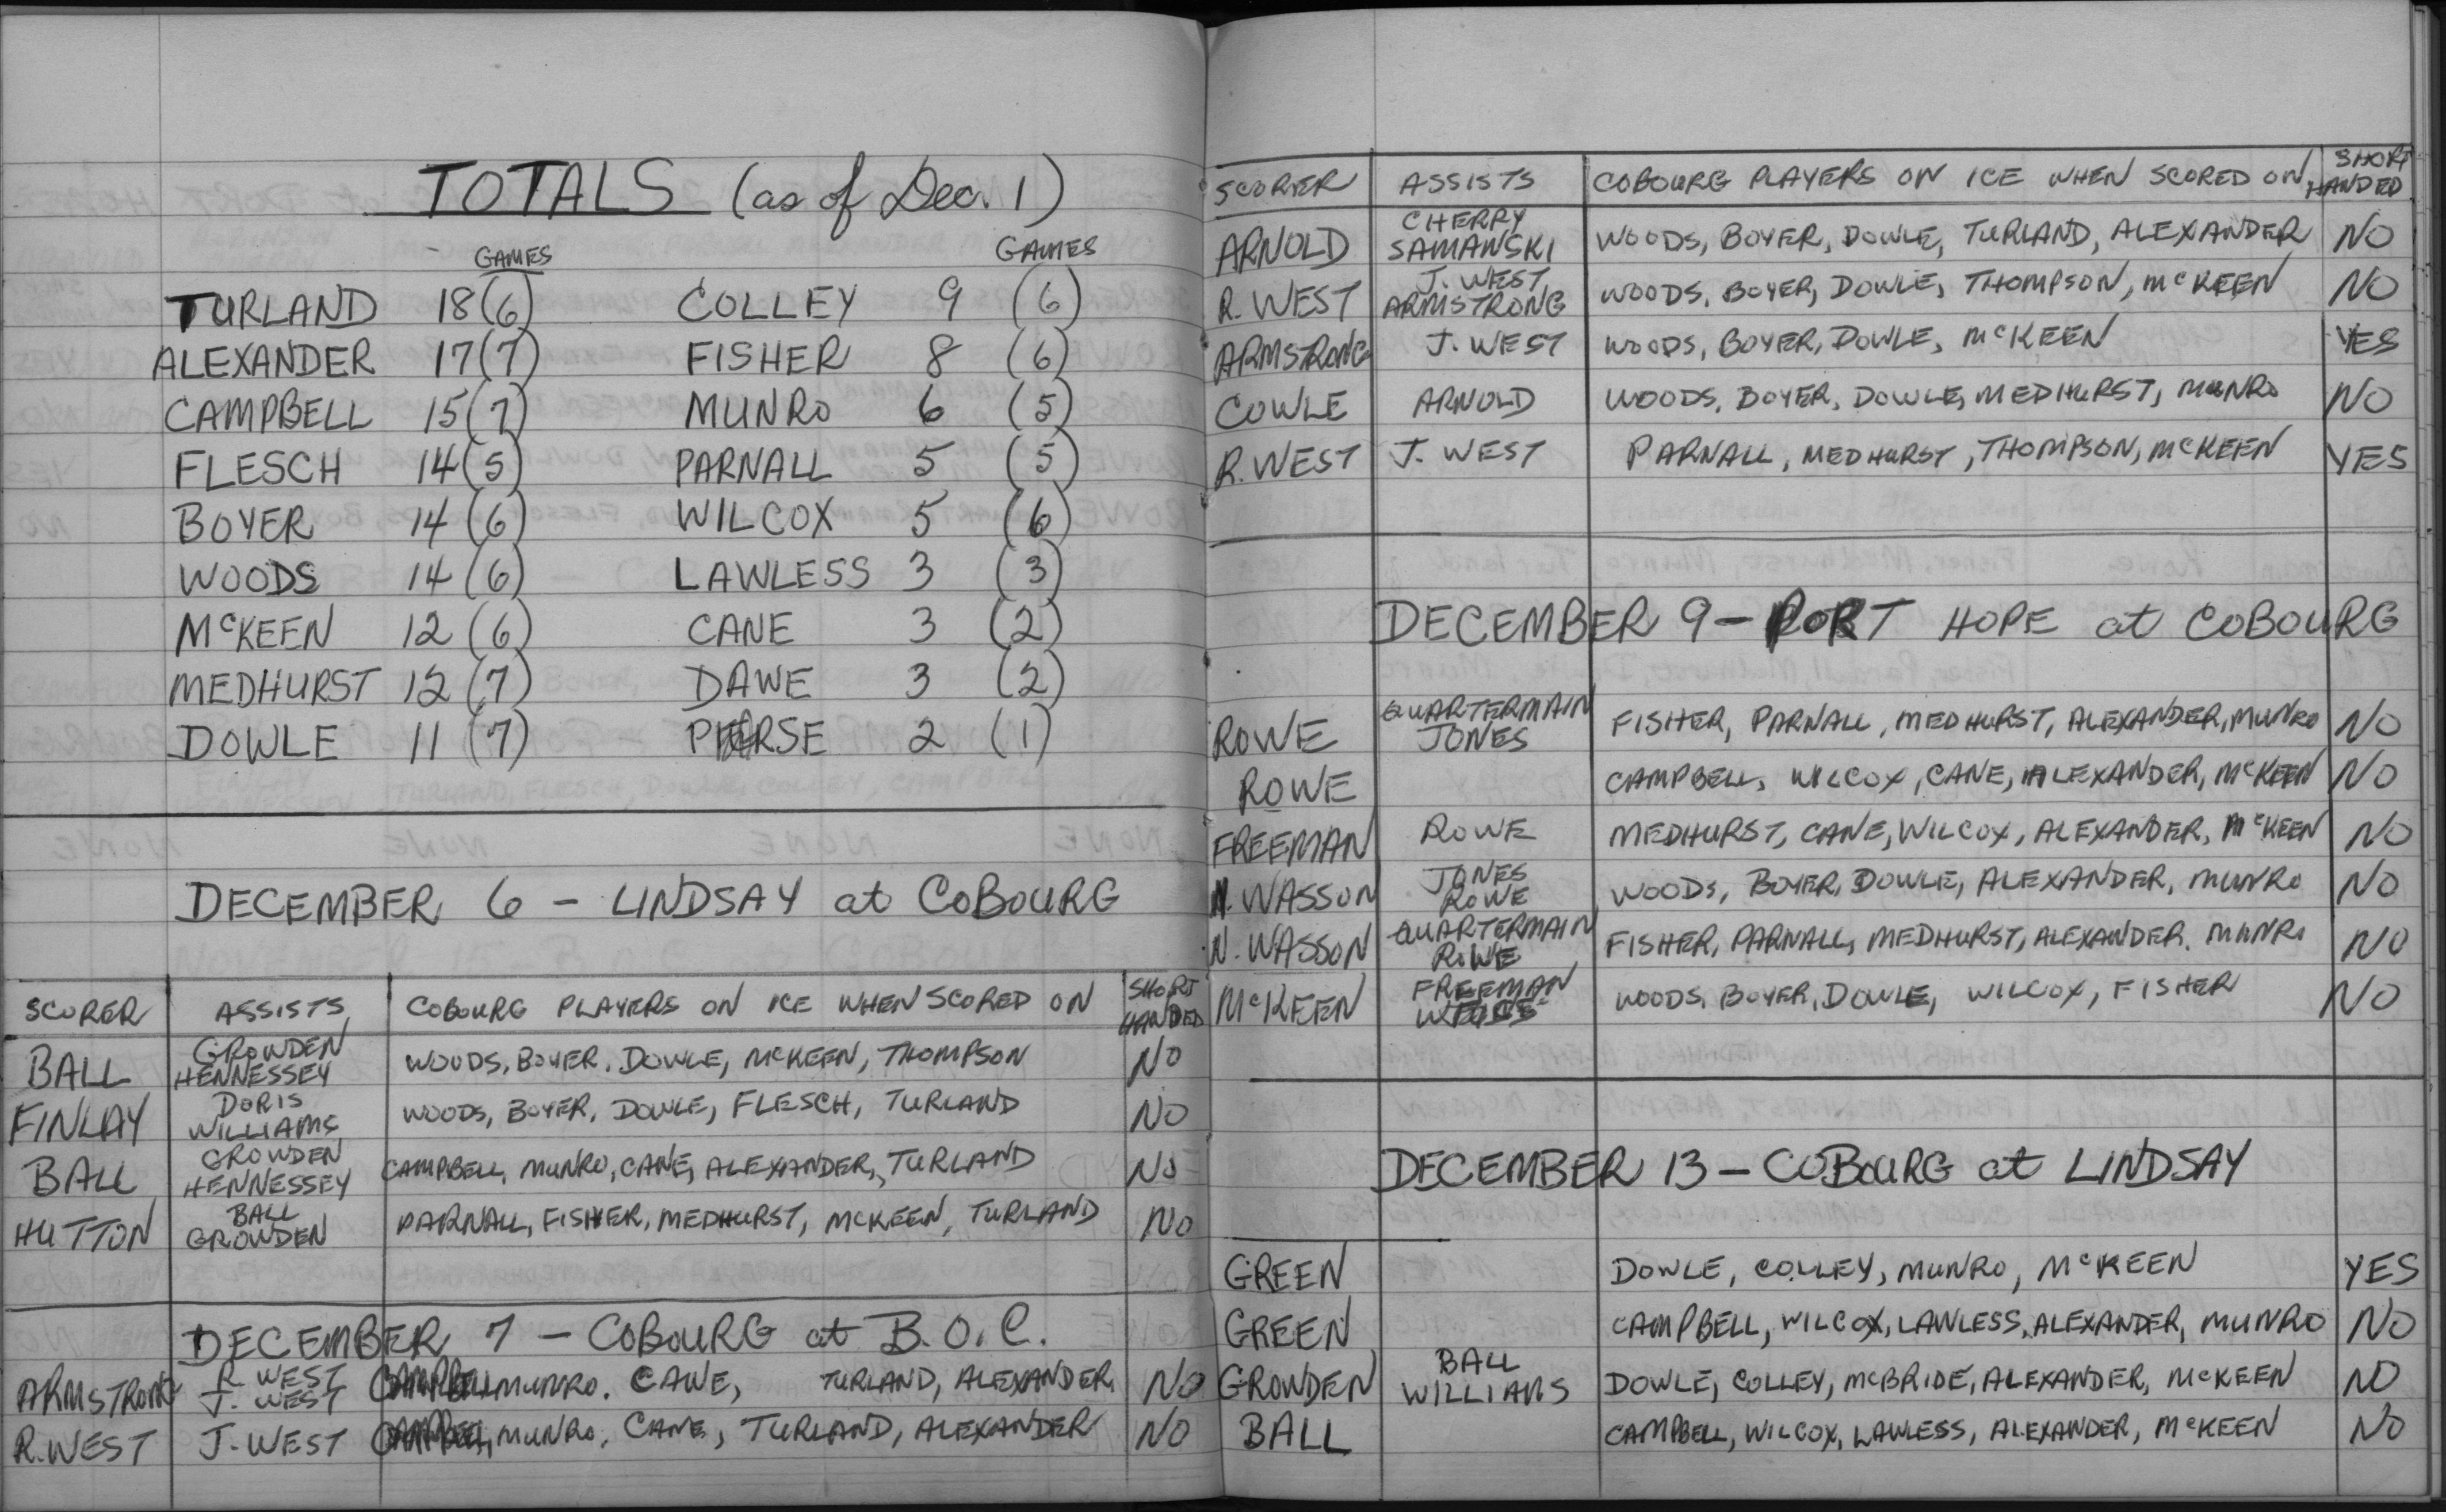 TOTALS (as of Dec. 1)
GAMES GAMES
TURLAND 18 (6) COLLEY 9 (6)
ALEXANDER 17 (7) FISHER 8 (6)
CAMPBELL 15 (7) MUNRO 6 (5)
FLESCH 14 (5) PARNALL 5 (5)
BOYER 14 (6) WILCOX 5 (6)
WOODS 14 (6) LAWLESS 3 (3)
McKEEN 12 (6) CANE 3 (2)
MEDHURST 12 (7) DAWE 3 (2)
DOWLE 11 (7) PEARSE 2 (1)
DECEMBER 6 - LINDSAY at COBOURG
SCORER ASSISTS COBOURG PLAYERS ON ICE WHEN SCORED ON SHORT HANDED
BALL GROWDEN HENNESSEY WOODS, BOYER, DOWLE, McKEEN, THOMPSON NO
FINLAY DORIS WILLIAMS WOODS, BOYER, DOWLE, FLESCH, TURLAND NO
BALL GROWDEN HENNESSEY CAMPBELL, MUNRO, CANE, ALEXANDER, TURLAND NO
HUTTON BALL GROWDEN PARNALL, FISHER, MEDHURST, McKEEN, TURLAND NO
DECEMBER 7 - COBOURG at B.O.C.
ARMSTRONG R WEST J. WEST CAMPBELL MUNRO, CANE, TURLAND, ALEXANDER NO
R. WEST J. WEST CAMPBELL, MUNRO, CANE, TURLAND, ALEXANDER NO
SCORER ASSISTS COBOURG PLAYERS ON ICE WHEN SCORED ON SHORT HANDED
ARNOLD CHERRY SAMANSKI WOODS, BOYER, DOWLE, TURLAND, ALEXANDER NO
R. WEST J. WEST ARMSTRONG WOODS, BOYER, DOWLE, THOMPSON, McKEEN NO
ARMSTRONG J. WEST WOODS, BOYER, DOWLE, McKEEN YES
COWLE ARNOLD WOODS, BOYER, DOWLE, MEDHURST, MUNRO NO
R. WEST J. WEST PARNALL, MEDHURST, THOMPSON, McKEEN YES
DECEMBER 9 - PORT HOPE at COBOURG
ROWE QUARTERMAIN JONES FISHER, PARNALL, MEDHURST, ALEXANDER, MUNRO NO
ROWE CAMPBELL, WILCOX, CANE, ALEXANDER, McKEEN NO
FREEMAN ROWE MEDHURST, CANE, WILCOX, ALEXANDER, McKEEN NO
N. WASSON JONES ROWE WOODS, BOYER, DOWLE, ALEXANDER, MUNRO NO
N. WASSON QUARTERMAIN ROWE FISHER, PARNALL, MEDHURST, ALEXANDER, MUNRO NO
McKEEN FREEMAN WOODS, BOYER, DOWLE, WILCOX, FISHER NO
DECEMBER 13 - COBOURG at LINDSAY
GREEN DOWLE, COLLEY, MUNRO, McKEEN YES
GREEN CAMPBELL, WILCOX, LAWLESS, ALEXANDER, MUNRO NO
GROWDEN BALL WILLIAMS DOWLE, COLLEY, McBRIDE, ALEXANDER, McKEEN NO
BALL CAMPBELL, WILCOX, LAWLESS, ALEXANDER, McKEEN NO